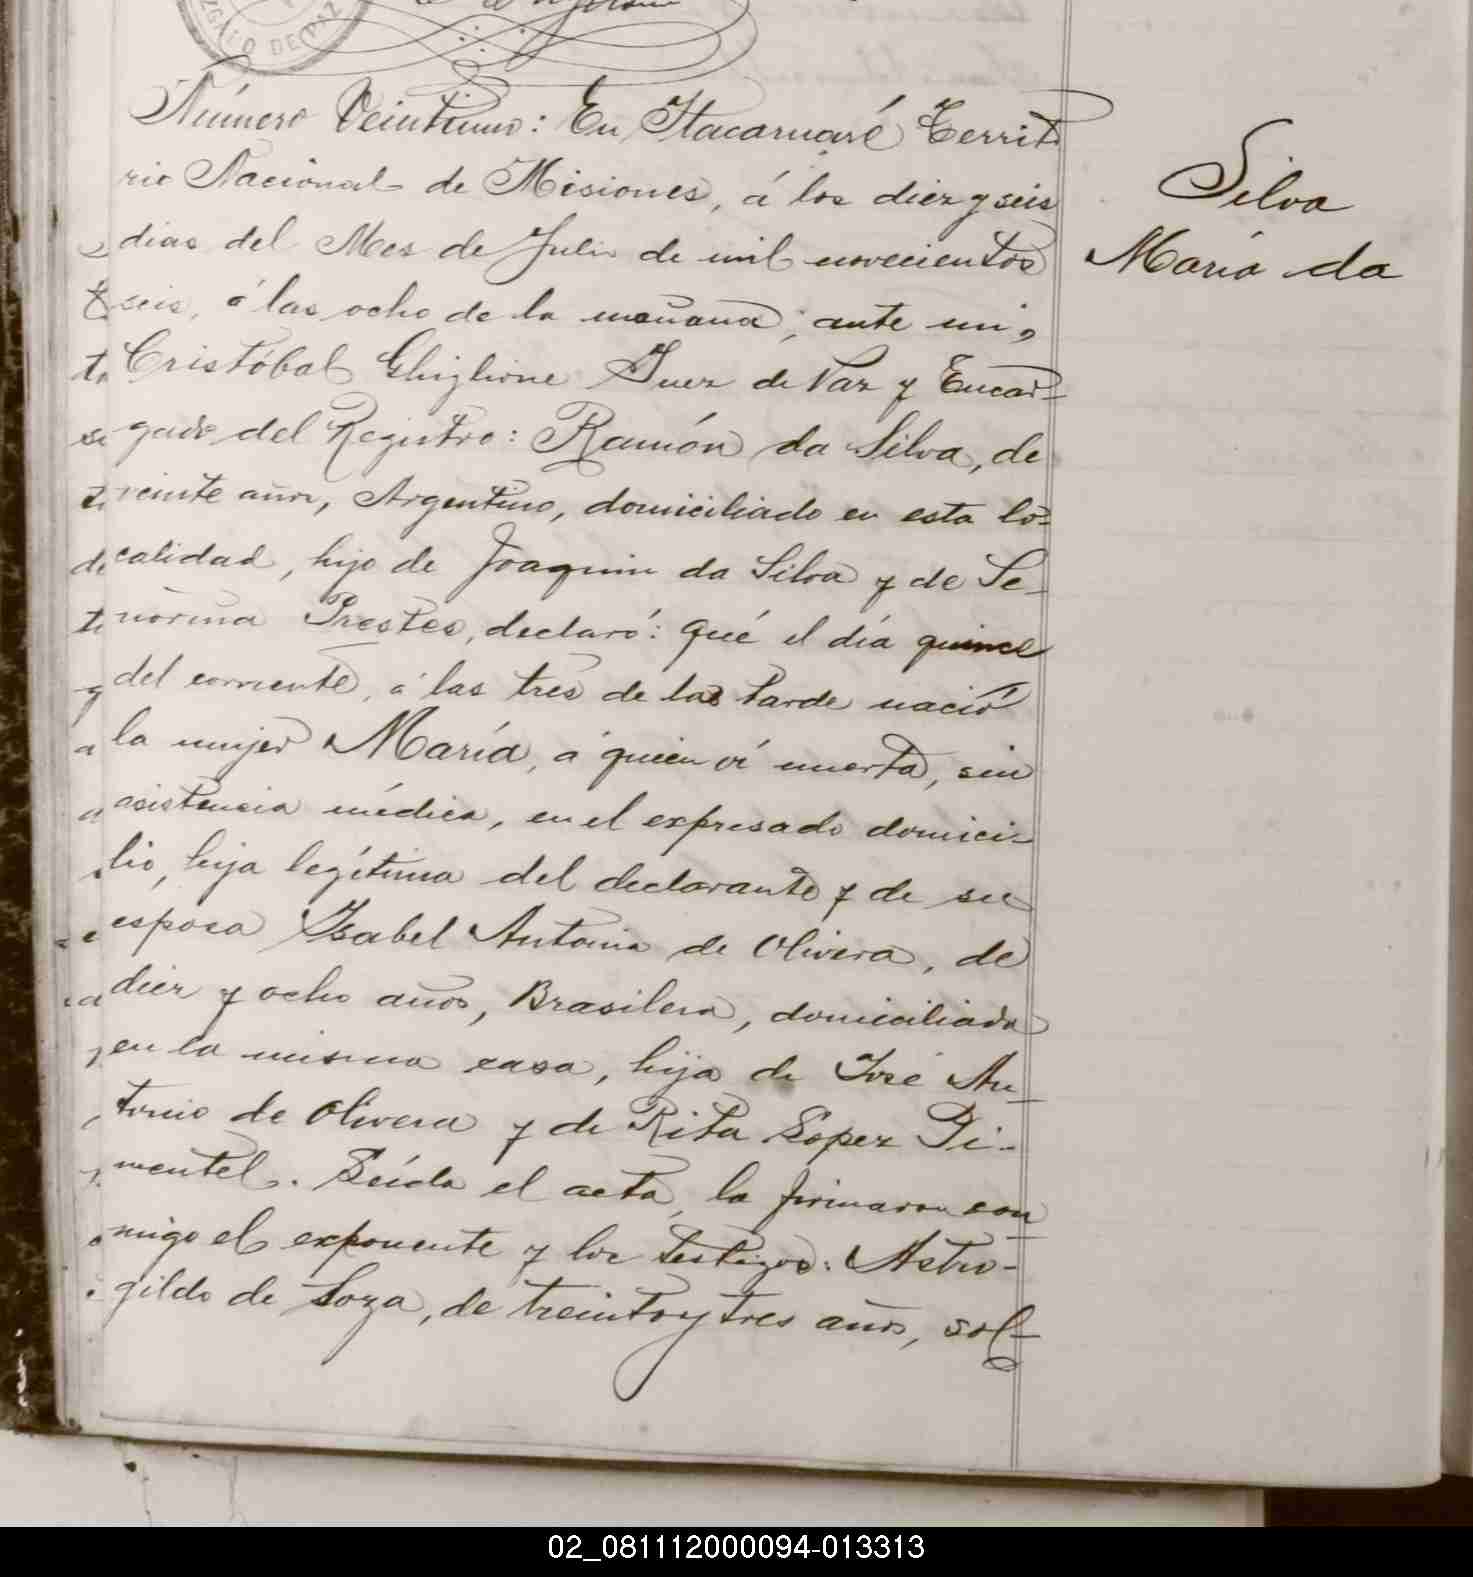 JUZGADO DE PAZ
Número Veintiuno: En Itacaruaré Territo
rio Nacional de Misiones, á los diez y seis
dias del Mes de Julio de mil novecientos
seis, á las ocho de la mañana; ante mi,
Cristóbal Ghiglione Juez de Paz y Encar-
gado del Registro: Ramón da Silva, de
veinte años, Argentino, domiciliado en esta lo-
calidad, hijo de Joaquin da Silva y de Se-
ñorina Prestes, declaró: qué el día quince
del corriente, á las tres de la tarde nació
la mujer María, á quien ví muerta, sin
asistencia médica, en el expresado domici-
lio, hija legítima del declarante y de su
esposa Isabel Antonia de Olivera, de
diez y ocho años, Brasilera, domiciliada
en la misma casa, hija de José An-
tonio de Olivera y de Rita Lopez Pi-
mentel. Leída el acta, la firmaron con
migo el exponente y los testigos: Astro-
gildo de Soza, de treinta y tres años, sol-
Silva
María da
02_081112000094-013313